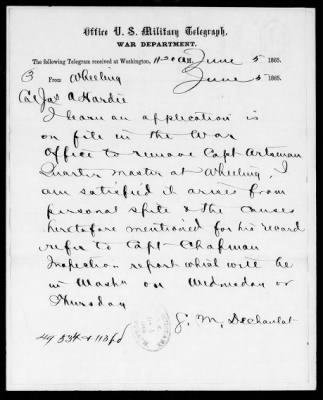 Office U. S. Military Telegraph,
WAR DEPARTMENT.
The following Telegram received at Washington, 11 20 A M. June 5 1865.
3 From Wheeling June 5 1865.
Col Jas A Hardie
I learn an application is
on file in the War
Office to remove Capt
Quarter Master at Wheeling, I
am satisfied it arises from
personal spite & the causes
heretofore mentioned for his record
refer to Capt Chapman
Inspection report which will be
in Washn on Wednesday or
Thursday
G. M.
49 534 &